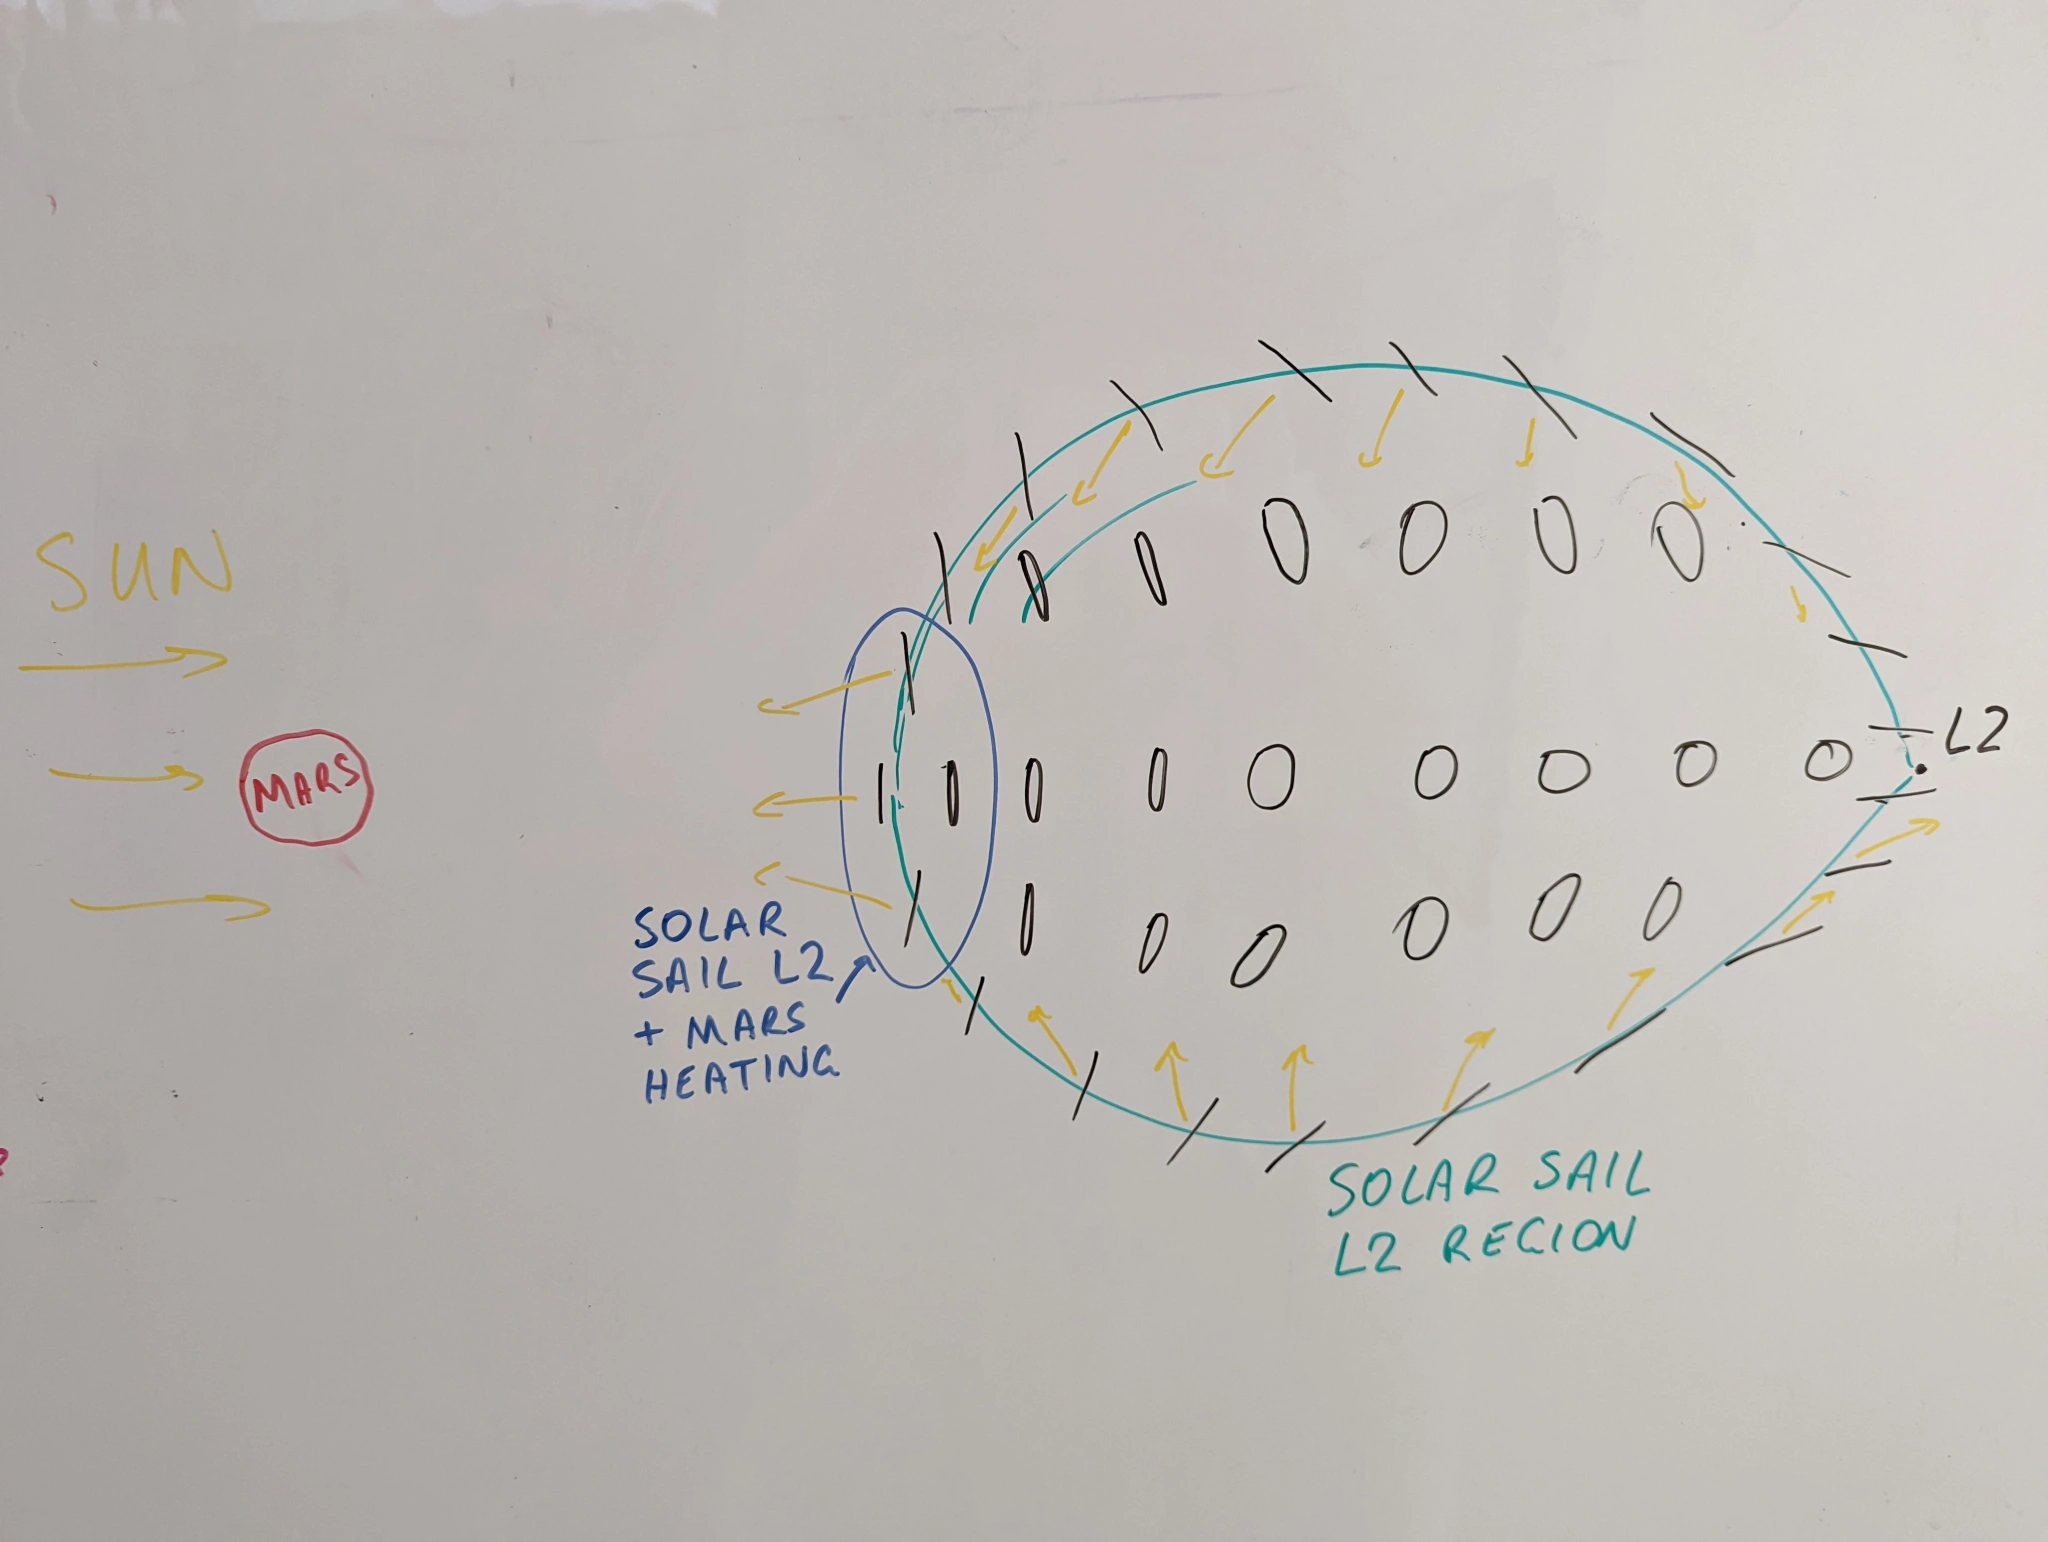 SUN
MARS
L2
SOLAR
SAIL L2
+ MARS
HEATING
SOLAR SAIL
L2 REGION